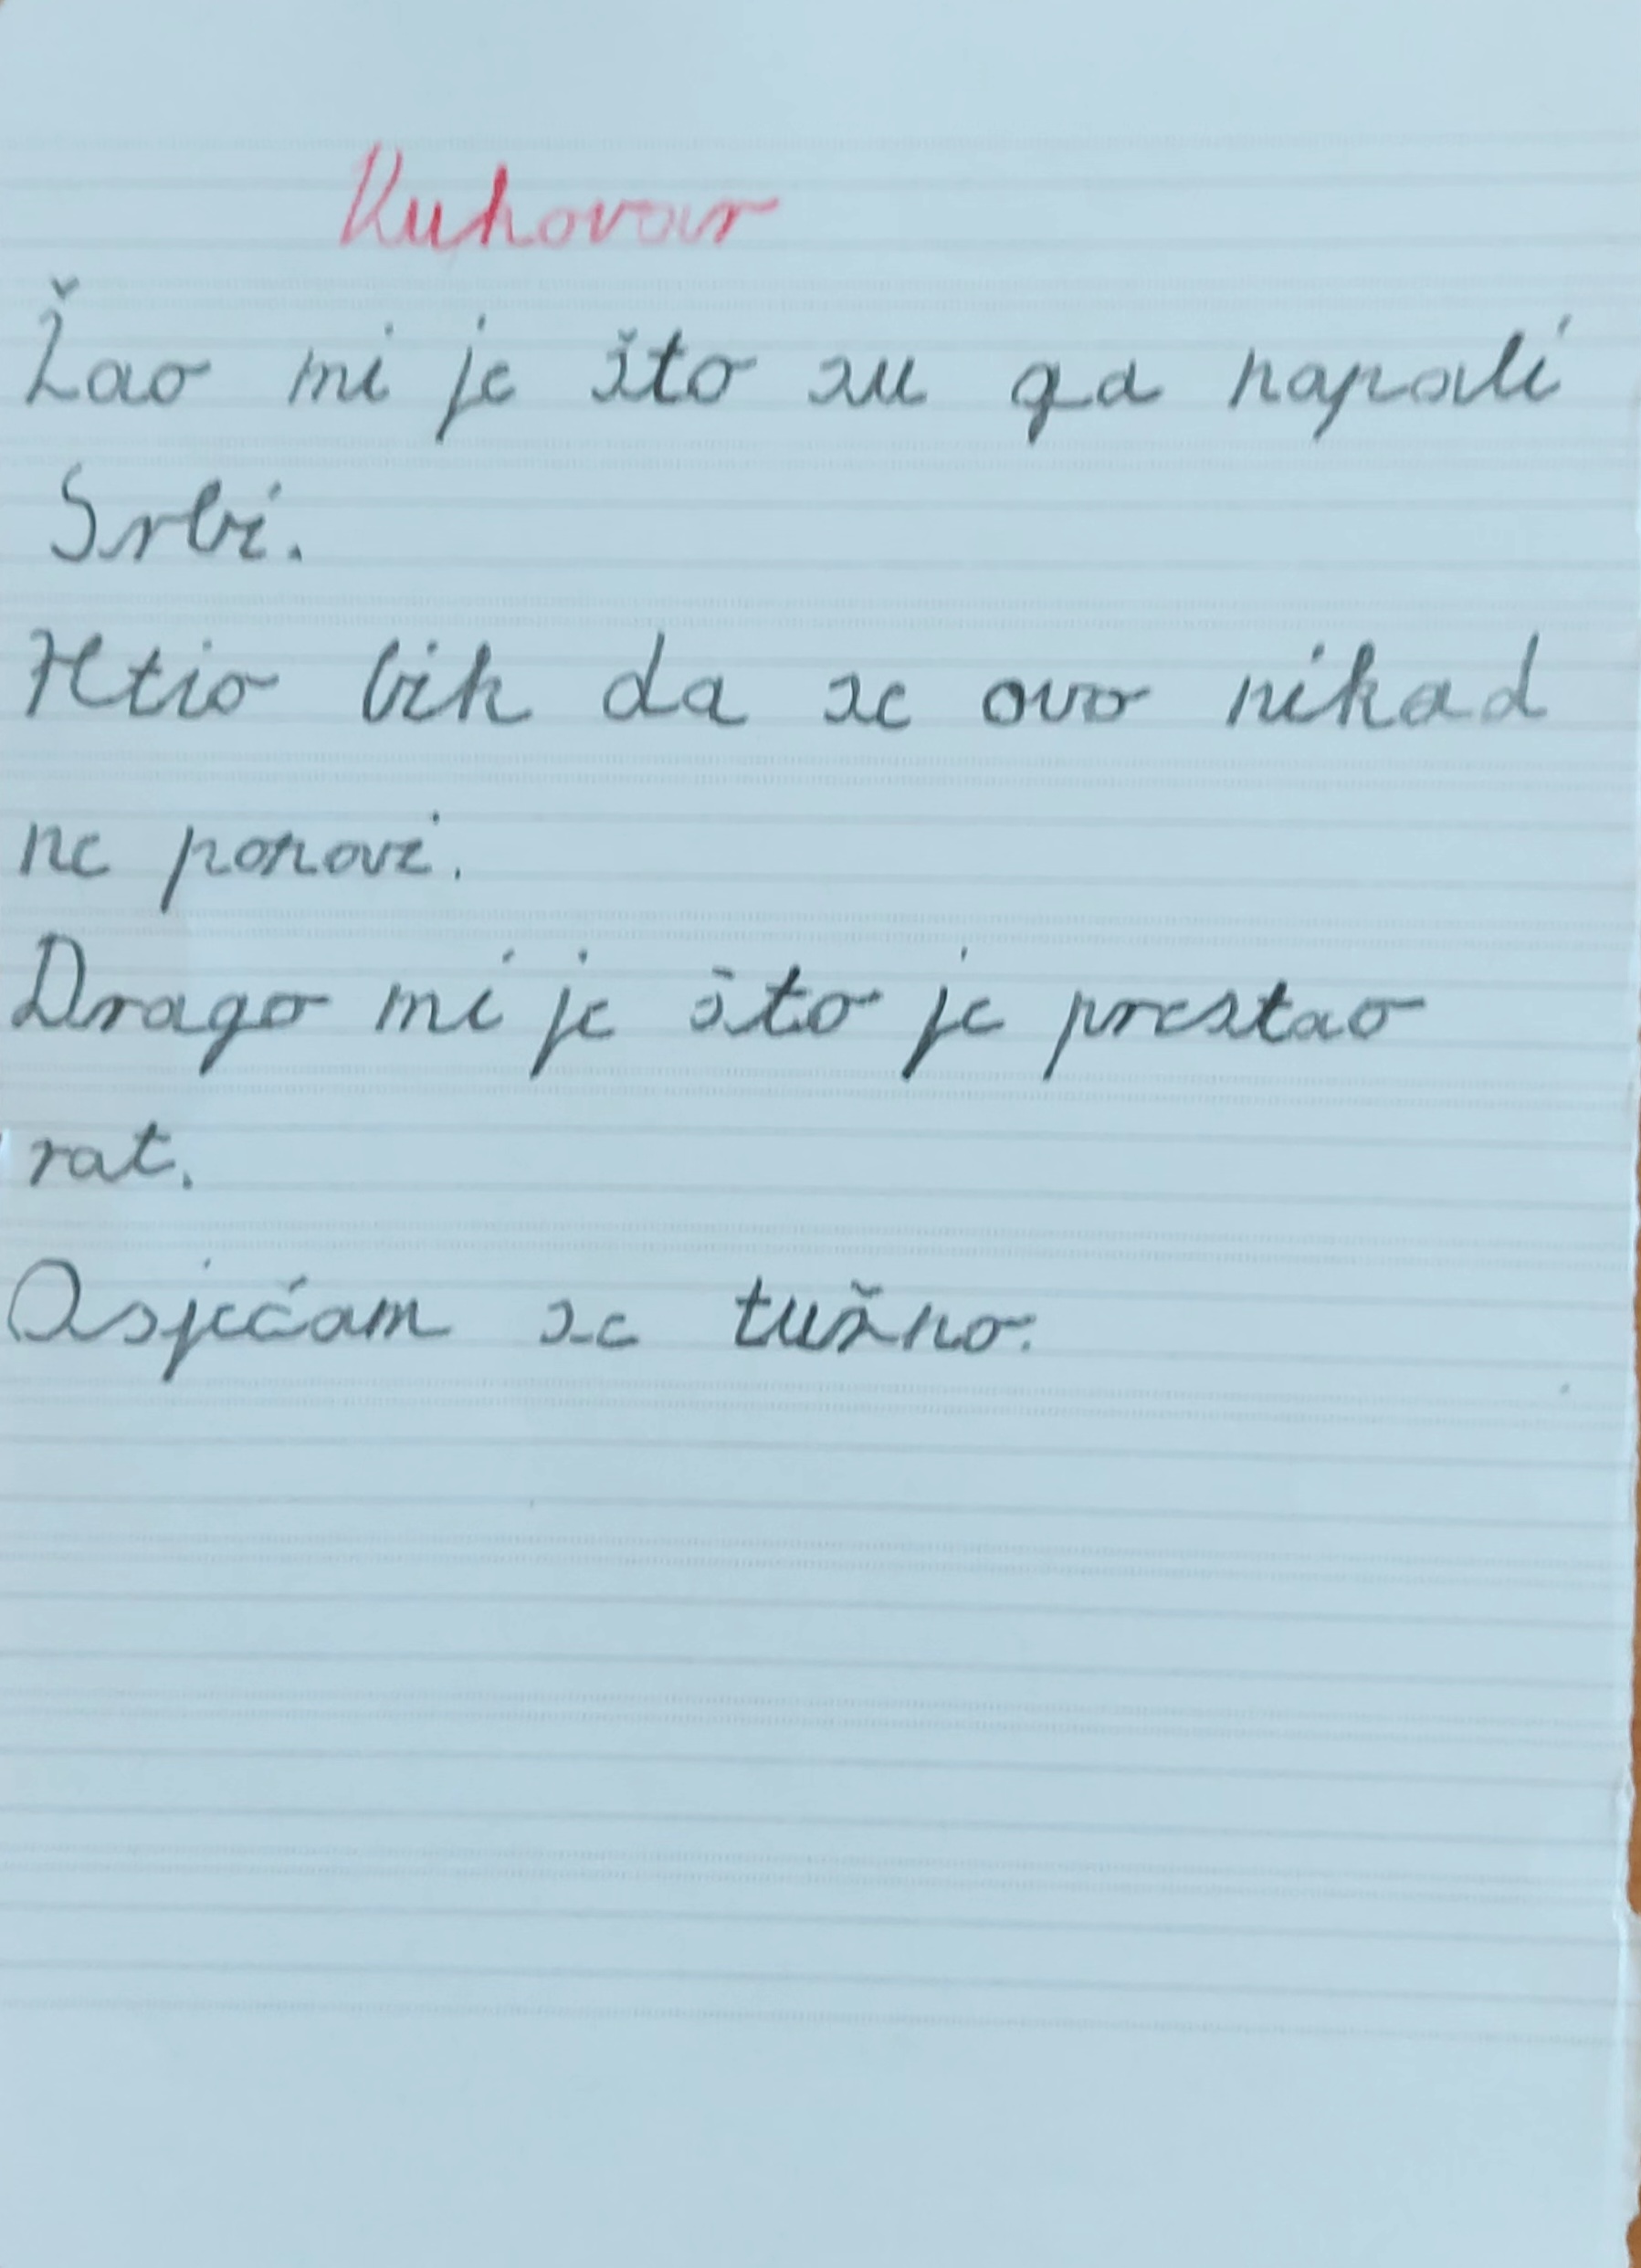 Vukovar
Žao mi je što su ga napali
Srbi.
Htio bih da se ovo nikad
ne ponovi.
Drago mi je što je prestao
rat.
Osjećam se tužno.